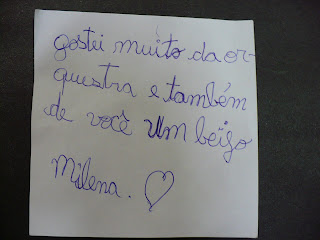 gostei muito da or-
questra e também
de você um beijo
Milena. ♡